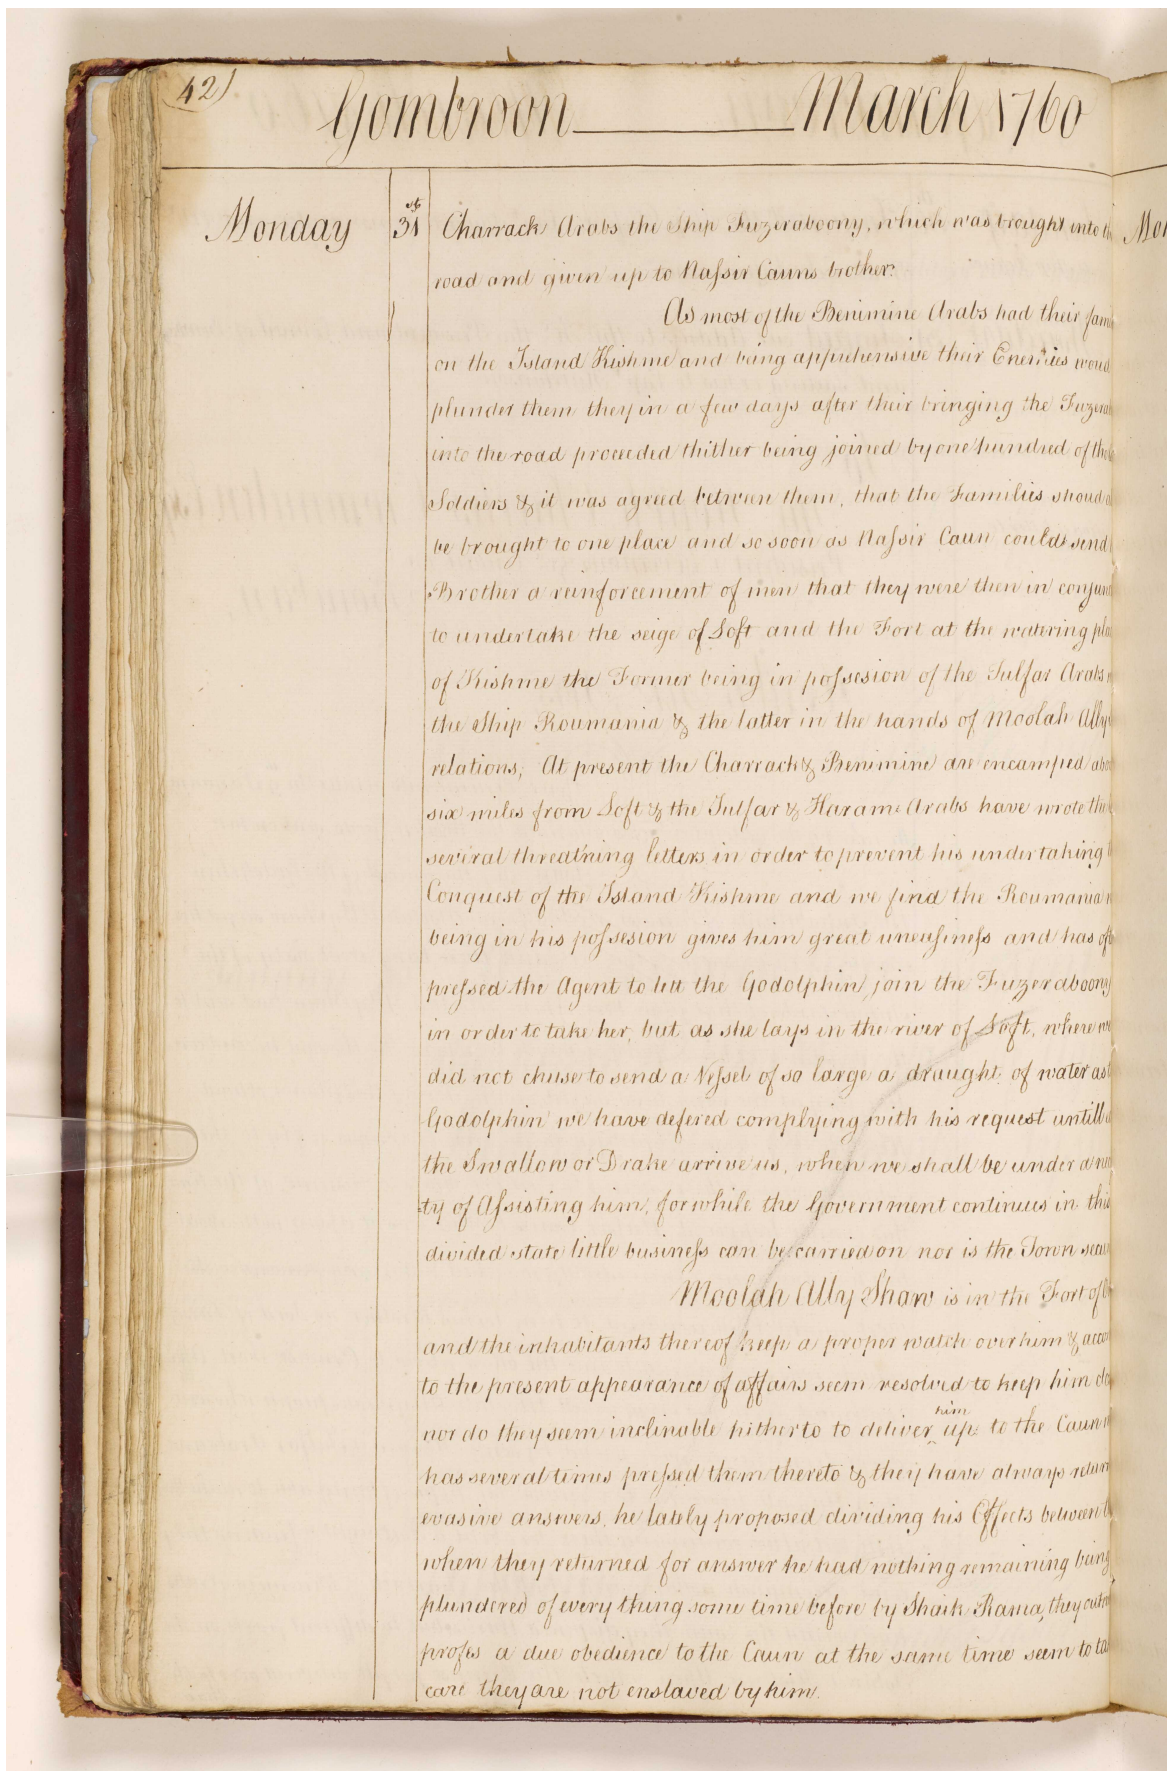 42)
Gombroon March 1760
Monday 31st Charrack Arabs the Ship Fuzeraboony, which was brought into
road and given up to Nassir Cauns brother.
As most of the Benimine Arabs had their
on the Island Kishme and being apprehensive their Enemies woud
plunder them they in a few days after their bringing the
into the road proceeded thither being joined by one hundred of
Soldiers & it was agreed between them, that the Families shoud
be brought to one place and so soon as Nassir Caun could send
Brother a reinforcement of men that they were then in
to undertake the seige of Loft and the Fort at the watering
of Kishme the Former being in possesion of the Julfar Arabs
the Ship Roumania & the latter in the hands of Moolah Ally
relations, At present the Charrack & Benimine are encamped
six miles from Loft & the Julfar & Harame Arabs have wrote
several threatning letters in order to prevent his undertaking
Conquest of the Island Kishme and we find the Roumania
being in his possesion gives him great uneasiness and has
pressed the Agent to lett the Godolphin join the Fuzeraboony
in order to take her, but as she lays in the river of Loft, where we
did not chuse to send a Vessel of so large a draught of water as
Godolphin we have defered complying with his request untill
the Swallow or Drake arrive us, when we shall be under a
ty of Assisting him, for while the Government continues in this
divided state little business can be carried on nor is the Town
Moolah Ally Shaw is in the Fort of
and the inhabitants thereof keep a proper watch over him &
to the present appearance of affairs seem resolved to keep him
nor do they seem inclinable hitherto to deliver him up to the Caun
has several times pressed them thereto & they have always
evasive answers, he lately proposed dividing his Effects between
when they returned for answer he had nothing remaining being
plundered of every thing some time before by Shaik Rama, they
profes a due obedience to the Caun at the same time seem to
care they are not enslaved by him.